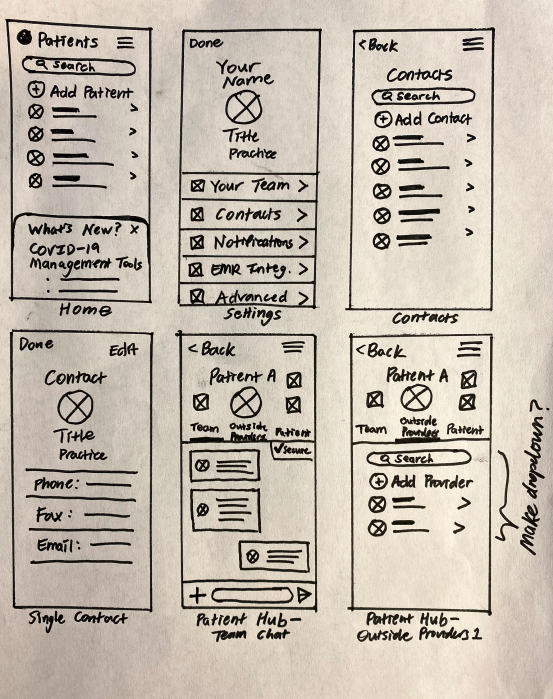 Patients
Search
Add Patient
What's New? X
COVID-19
Management Tools
Home
Done
Your
Name
Title
Practice
Your Team >
Contacts >
Notifications >
EMR Integ. >
Advanced >
Settings
<Back
Contacts
Search
Add Contact
Contacts
Done
Edit
Contact
Title
Practice
Phone:
Fax:
Email:
Single Contact
<Back
Patient A
Team
Outside
Providers
Patient
✓Secure
Patient Hub-
Team Chat
<Back
Patient A
Team
Outside
Providers
Patient
Search
Add Provider
Patient Hub-
Outside Providers 1
Make dropdown?